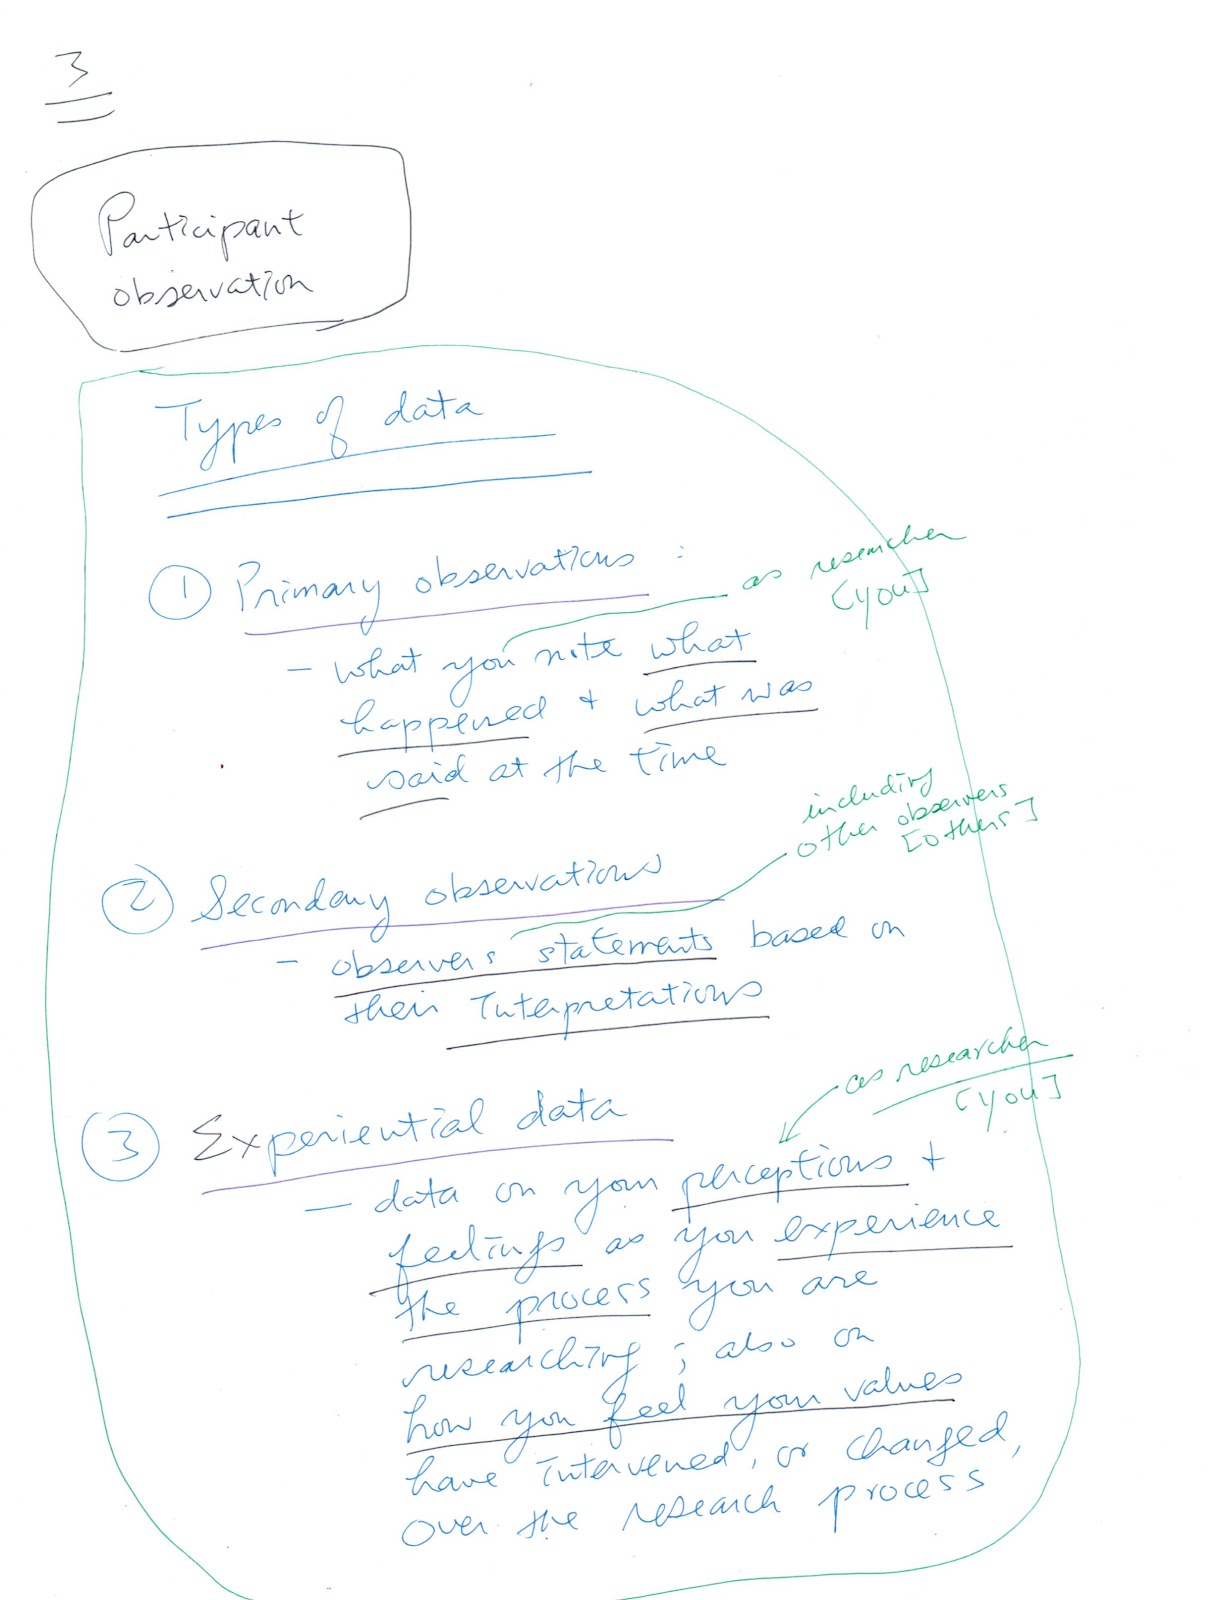 3
Participant
observation
Types of data
① Primary observations :
as researcher
[you]
- what you note what
happened + what was
said at the time
including
other observers
[others]
② Secondary observations
- observers statements based on
their interpretations
③ Experiential data
as researcher
[you]
- data on your perceptions +
feelings as you experience
the process you are
researching ; also on
how you feel your values
have intervened, or changed,
over the research process